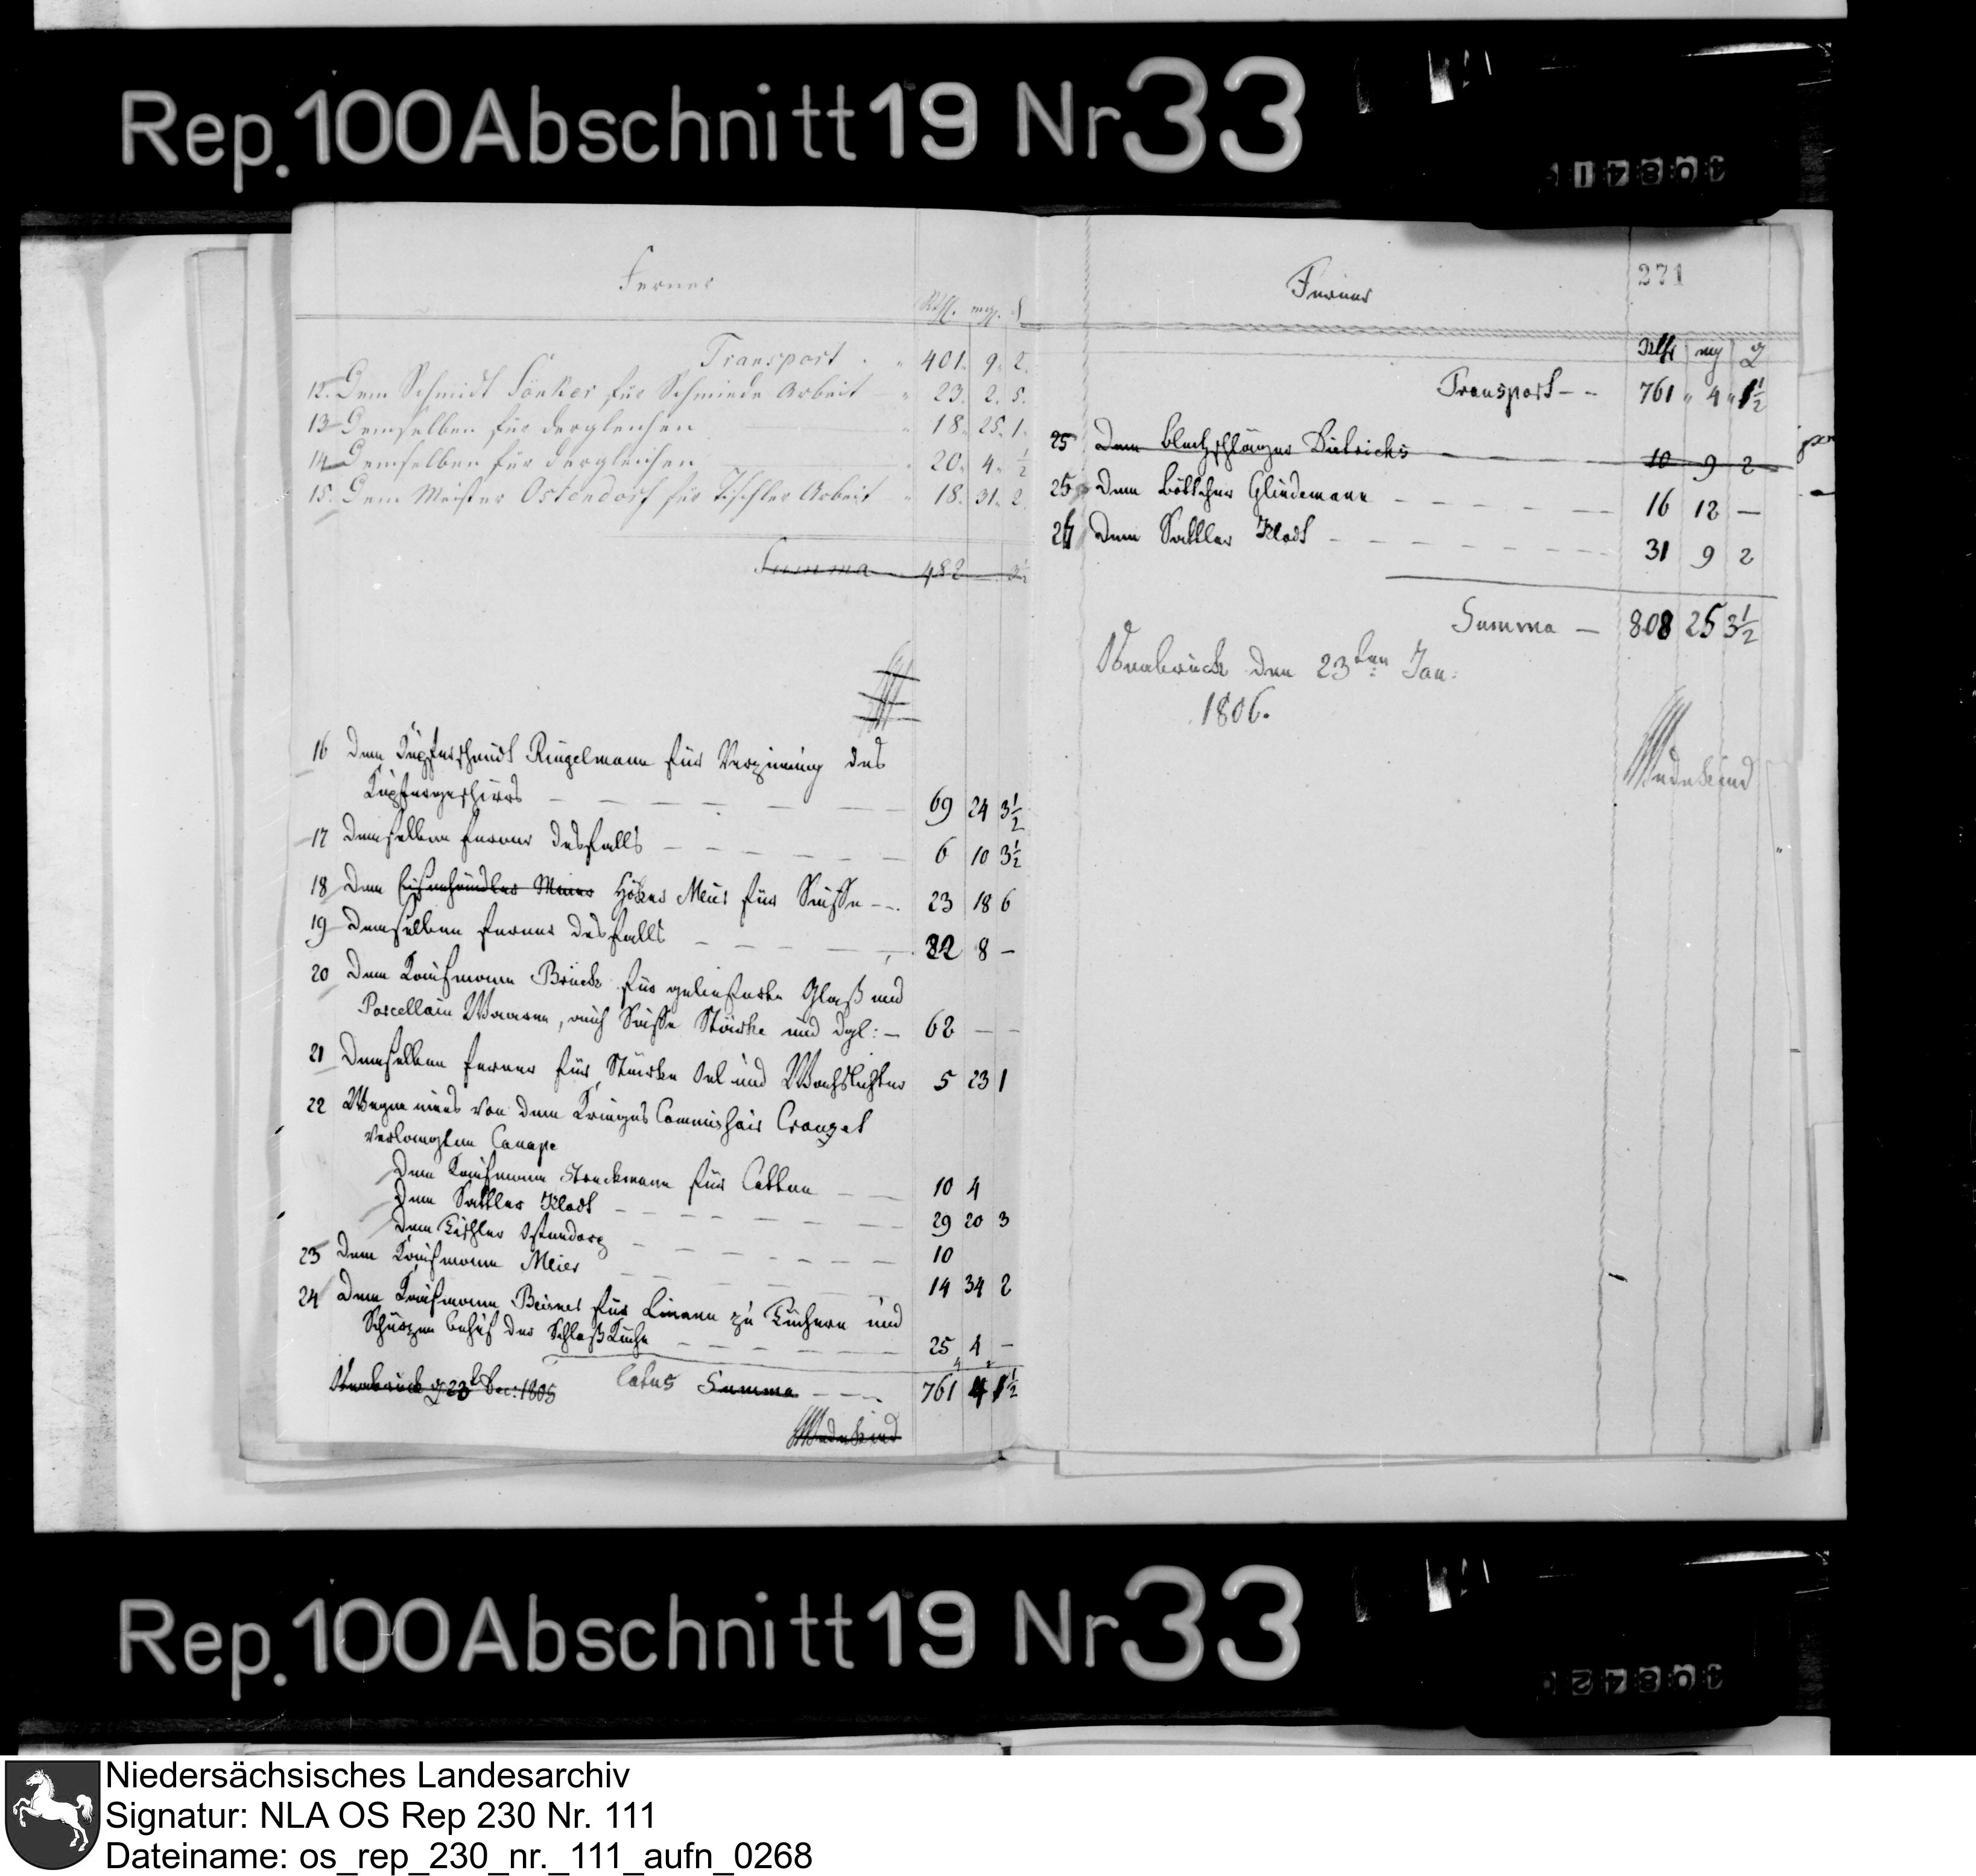 Rep. 100 Abschnitt 19 Nr 33
Ferner
Rthlr. mgr. d
Transport . " 401. 9. 2.
12. Dem Schmidt Sönker für Schmiede Arbeit " 23. 2. 5.
13 Demselben für dergleichen " 18. 25. 1.
14 Demselben für dergleichen " 20. 4. ½
15. Dem Meister Ostendorf für Tischler Arbeit " 18. 31. 2.
Summa 482 — 3½
16 Dem Kupferschmidt Ringelmann für Verzinnung des
Kupfergeschirrs — 69 24 3½
17 Demselben ferner desfalls — 6 10 3½
18 Dem Eisenhändler Meier Höker Meier für Seiffe — 23 18 6
19 Demselben ferner desfalls — 32 8 —
20 Dem Kaufmann Brück für gelieferte Glaß und
Porcellain Waaren, auch Seiffe Stärke und dgl: — 62 — —
21 Demselben ferner für Stärke Oel und Wachslichter 5 23 1
22 Wegen eines von dem Krieges Commissair Crouzet
verlangten Canape
Dem Kaufmann Struckmann für Cattun — 10 4
Dem Sattler Klodt — 29 20 3
Dem Tischler Ostendorf — 10
23 Dem Kaufmann Meier — 14 34 2
24 Dem Kaufmann für Linnen zu Tüchern und
Schürzen behuf der Schloß Küche — 25 4 —
Osnabrück d 23t Dec: 1805 Latus Summa — 761 4 1½
Wedekind
271
Ferner
Rthlr mg d
Transport — 761 " 4 " 1½
25 Dem Blechschläger Dietrichs — 10 9 2
25 Dem Böttcher Gliedemann — 16 12 —
26 Dem Sattler Klodt — 31 9 2
Summa — 808 25 3½
Osnabrück den 23ten Jan:
1806.
Wedekind
Rep. 100 Abschnitt 19 Nr 33
Niedersächsisches Landesarchiv
Signatur: NLA OS Rep 230 Nr. 111
Dateiname: os_rep_230_nr._111_aufn_0268